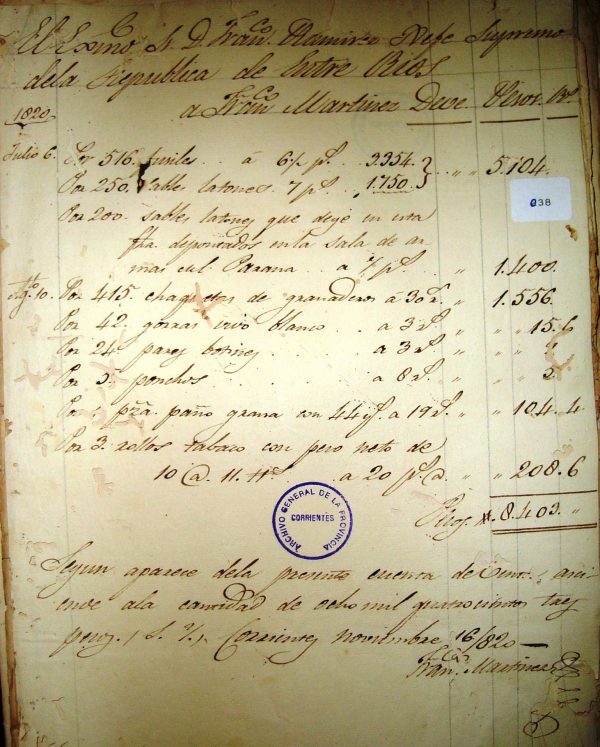 El Exmo Sr. D. Franco. Ramirez Gefe Supremo
dela Republica de Entre Rios
a Franco. Martinez Deve Pesos Rs.
1820
Julio 6. Por 516 fusiles á 6½ ps. 3354
5.104
Por 250. sables latones 7 ps. 1.750
Por 200. sables latones que dejé en esta
fha. depositados en la sala de ar
mas el Parana a 7 ps. " 1.400
Agto. 10. Por 415. chaquetas de granaderos á 30 rs. " 1.556
Por 42. gorras vivo blanco a 3 rs. " " 15.6
Por 24. pares botines a 3 rs. " "
Por 5. ponchos a 8 rs. " " 5
Por pza. paño grana con 44 ys. a 19 rs. " 104.4
Por 3. rollos tabaco con peso neto de
10 @. 11. lls. a 20 ps. @ " 208.6
Pesos 8.403 "
Segun aparece dela presente cuenta de asci
ende ala cantidad de ocho mil quatrocientos tres
pesos Corrientes Noviembre 16/820
Franco. Martinez
038
ARCHIVO GENERAL DE LA PROVINCIA
CORRIENTES